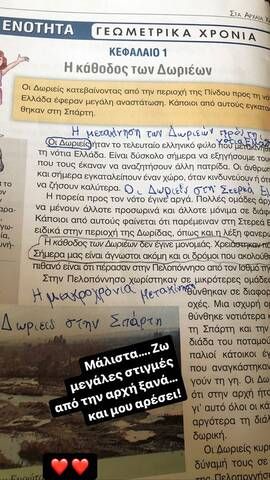 Στα Αρχαία
ΕΝΟΤΗΤΑ ΓΕΩΜΕΤΡΙΚΑ ΧΡΟΝΙΑ
ΚΕΦΑΛΑΙΟ 1
Η κάθοδος των Δωριέων
Οι Δωριείς κατεβαίνοντας από την περιοχή της Πίνδου προς τη ν
Ελλάδα έφεραν μεγάλη αναστάτωση. Κάποιοι από αυτούς εγκατα
θηκαν στη Σπάρτη.
Η μετακίνηση των Δωριέων προς τη
Οι Δωριείς ήταν το τελευταίο ελληνικό φύλο που μετακ
τη νότια Ελλάδα. Είναι δύσκολο σήμερα να εξηγήσουμε του
που τους έκαναν να αναζητήσουν άλλη πατρίδα. Οι άνθ
και σήμερα εγκαταλείπουν έναν χώρο, όταν κινδυνεύουν ή ότ
να ζήσουν καλύτερα. Οι Δωριείς στη Στερεά Ε
Η πορεία προς τον νότο έγινε αργά. Πολλές ομάδες άρχ
να μένουν άλλοτε προσωρινά και άλλοτε μόνιμα σε διά
Κάποιοι από αυτούς φαίνεται ότι παρέμειναν στη Στερεά Ε
ειδικά στην περιοχή της Δωρίδας, όπως και η λέξη φανερ
Η κάθοδος των Δωριέων δεν έγινε μονομιάς. Χρειάστηκαν
Σήμερα μας είναι άγνωστοι ακόμη και οι δρόμοι που ακολούθ
πιθανό είναι ότι πέρασαν στην Πελοπόννησο από τον Ισθμό τ
Στην Πελοπόννησο χωρίστηκαν σε μικρότερες ομάδε
Η μακροχρόνια μετακίνηση
θύνθηκαν σε διαφορ
χές. Μια ισχυρή ο
Δωριείς στην Σπάρτη
θύνθηκε νοτιότερα κ
τη Σπάρτη και την
διάδα του ποταμού
παλιοί κάτοικοι έχ
που αναγκάστηκαν
γούν τη γη. Οι Δω
ότι στην αρχή ήτ
γι' αυτό όλοι οι κ
αργότερα τη διάλ
δωρική.
Οι Δωριείς κυρί
δύναμή τους σε
Μάλιστα.... Ζω
μεγάλες στιγμές
από την αρχή ξανά...
και μου αρέσει!